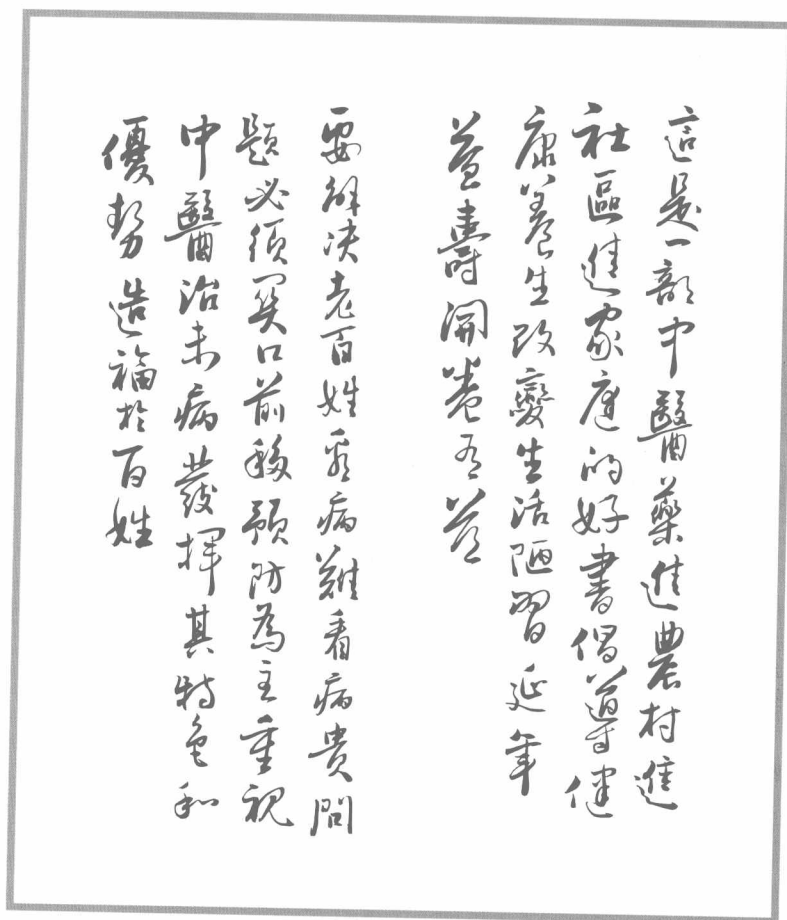 這是一部中醫藥進農村進
社區進家庭的好書倡導健
康養生改變生活陋習延年
益壽開卷有益
要解决老百姓看病難看病貴問
題必須関口前移預防為主重視
中醫治未病發揮其特色和
優勢造福於百姓